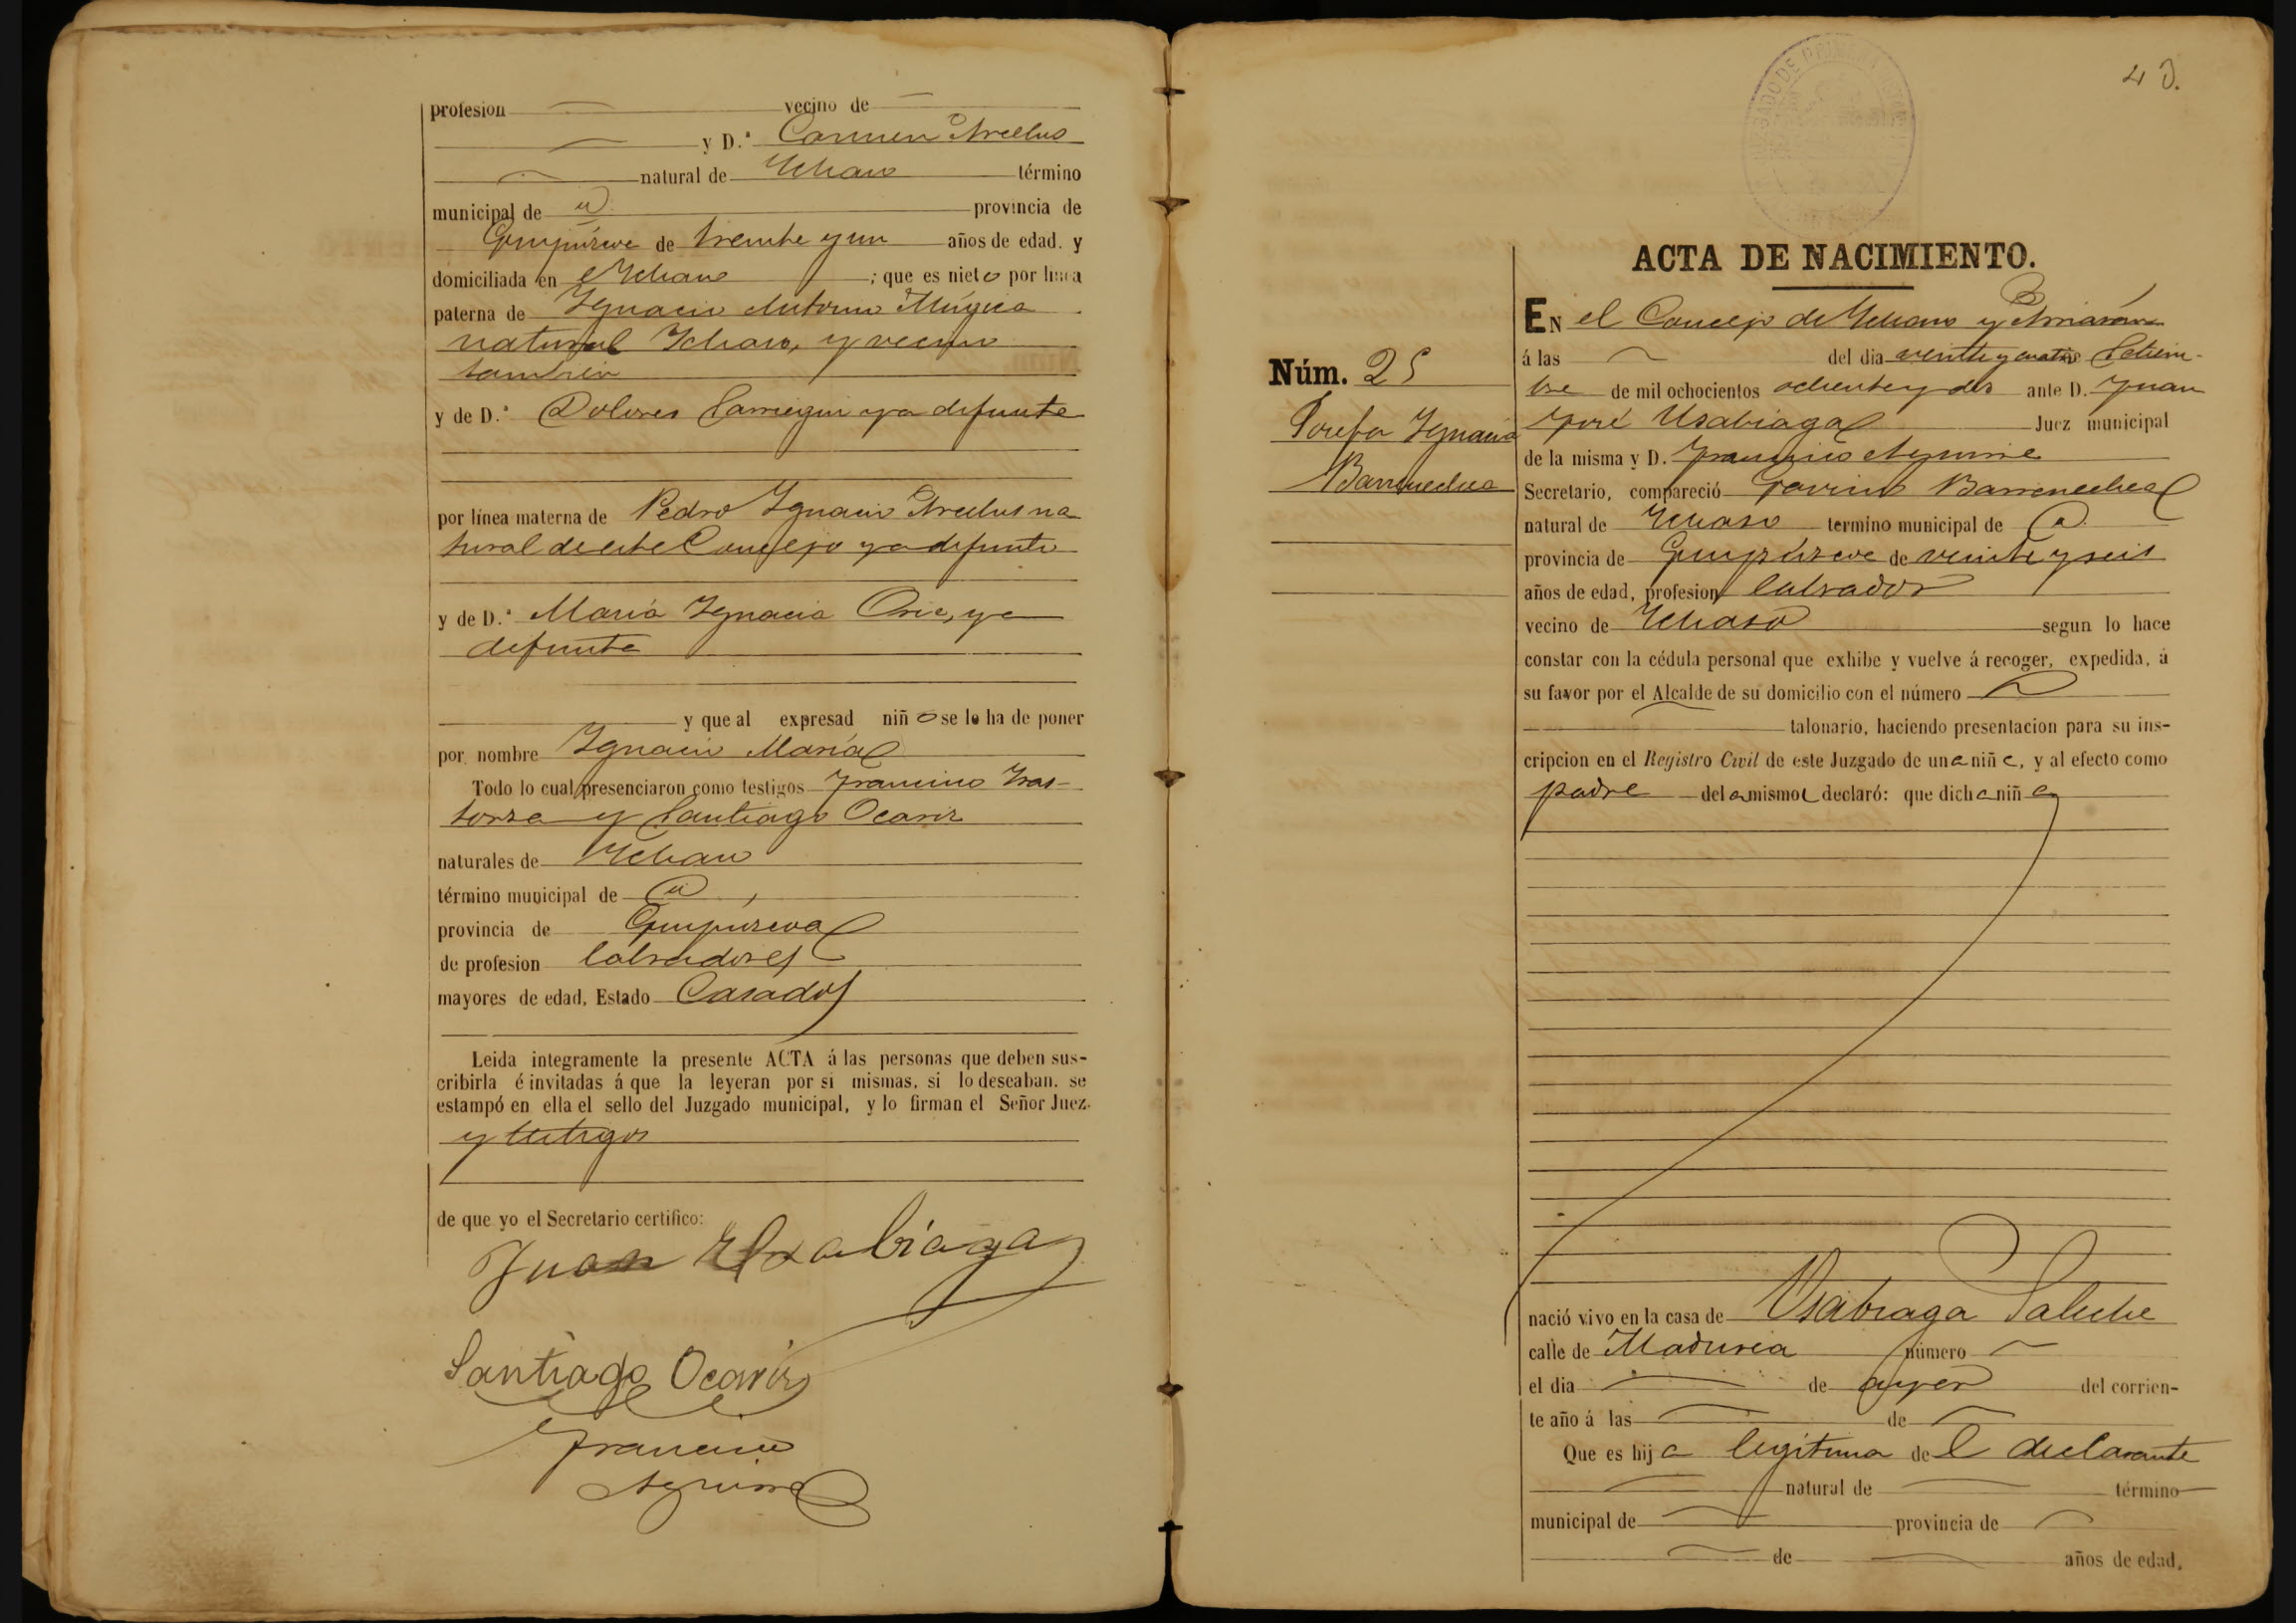 profesion vecino de
y D.ª Carmen Arcelus
natural de Ichaso término
municipal de id. provincia de
Guipúzcoa de treinta y un años de edad. y
domiciliada en Ichaso ; que es nieto por línea
paterna de Ignacio Antonio Múgica
natural Ichaso, y vecino
tambien
y de D.ª Dolores Larregui ya difunta
por línea materna de Pedro Ignacio Arcelus na
tural de este Concejo ya difunto
y de D.ª Maria Ignacia Oria, ya
difunta
y que al expresad niño se le ha de poner
por nombre Ignacio María
Todo lo cual presenciaron como testigos Francisco Iras-
torza y Santiago Ocariz
naturales de Ichaso
término municipal de id
provincia de Guipúzcoa
de profesion labradores
mayores de edad, Estado Casados
Leida integramente la presente ACTA á las personas que deben sus-
cribirla é invitadas á que la leyeran por si mismas, si lo deseaban. se
estampó en ella el sello del Juzgado municipal, y lo firman el Señor Juez.
y testigos
de que yo el Secretario certifico:
Juan Usabiaga
Santiago Ocariz
Francisco
Aguirre
40.
ACTA DE NACIMIENTO.
EN el Concejo de Ichaso y Arriarán
á las del dia veinte y cuatro Setiem-
bre de mil ochocientos ochenta y dos ante D. Juan
José Usabiaga Juez municipal
de la misma y D. Francisco Aguirre
Núm. 25
Josefa Ignacia
Barrenechea
Secretario, compareció Gavino Barrenechea
natural de Ichaso termino municipal de id
provincia de Guipúzcoa de veinte y seis
años de edad, profesion labrador
vecino de Ichaso segun lo hace
constar con la cédula personal que exhibe y vuelve á recoger, expedida, á
su favor por el Alcalde de su domicilio con el número
talonario, haciendo presentacion para su ins-
cripcion en el Registro Civil de este Juzgado de una niña, y al efecto como
padre de la misma declaró: que dicha niña
nació vivo en la casa de Usabiaga
calle de número
el dia de ayer del corrien-
te año á las de
Que es hija legitima de l declarante
natural de término
municipal de provincia de
de años de edad.